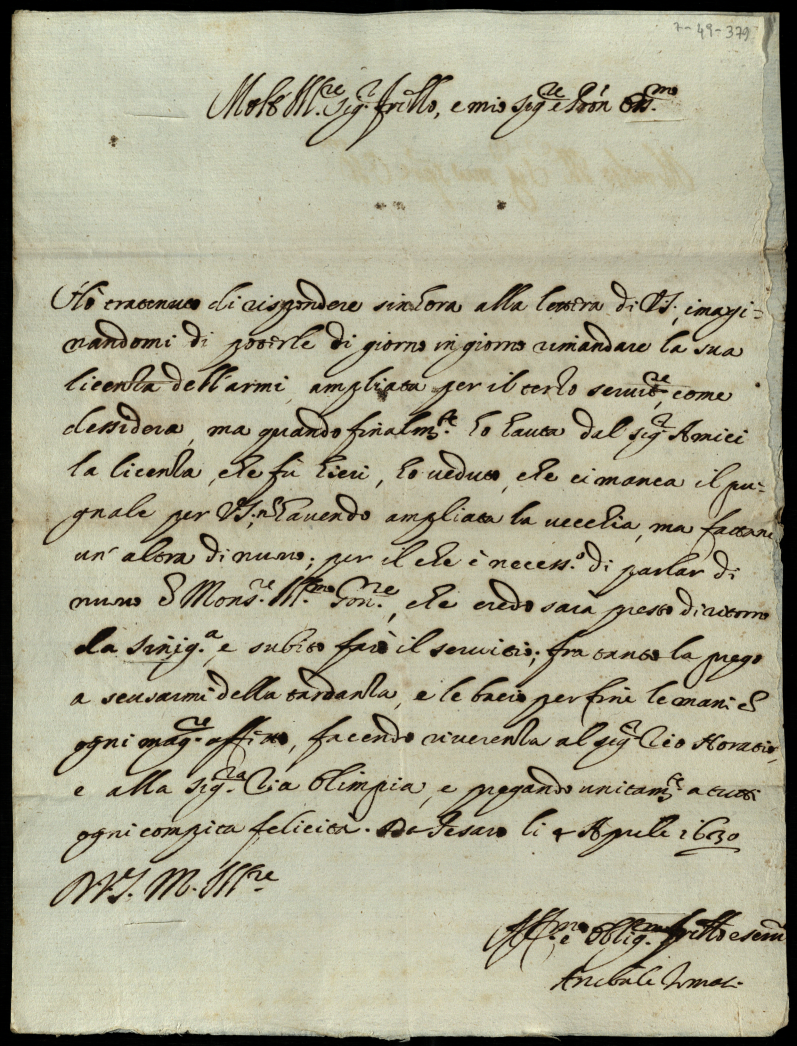 7-49-379
Molt' Ill.re sig.r fr̃ello, e mio sig.re e Prõn oss.mo
Hò tratenuto di rispondere sinhora alla lettera di VS; imagi=
nandomi di poterle di giorno in giorno rimandare la sua
licenza dell'armi, ampliata per il terzo servit.re, come
dessidera, ma quando finalm.te hò hauta dal sig.r Amici
la licenza, che fù hieri, hò veduto, che ci manca il pu=
gnale per VS; nõ havendo ampliata la vecchia, ma fattane
un' altra di nuovo; per il che è necess.o di parlar di
nuovo à Mons.r Ill.mo Gov.re, che credo sarà presto di ritorno
da Sinig.a, e subito farò il servitio; fra tanto la prego
a scusarmi della tardanza, e le bacio per fine le mani cõ
ogni mag.re affetto, facendo riverenza al sig.r Zio Horatio,
e alla sig.ra Zia Olimpia, e pregando unitam.te a tutti
ogni compita felicità. Da Pesaro li 4 Aprile 1630
D V.S. M. Ill.re
Aff.mo e Oblig.mo fr̃ello e serv.
Anibale